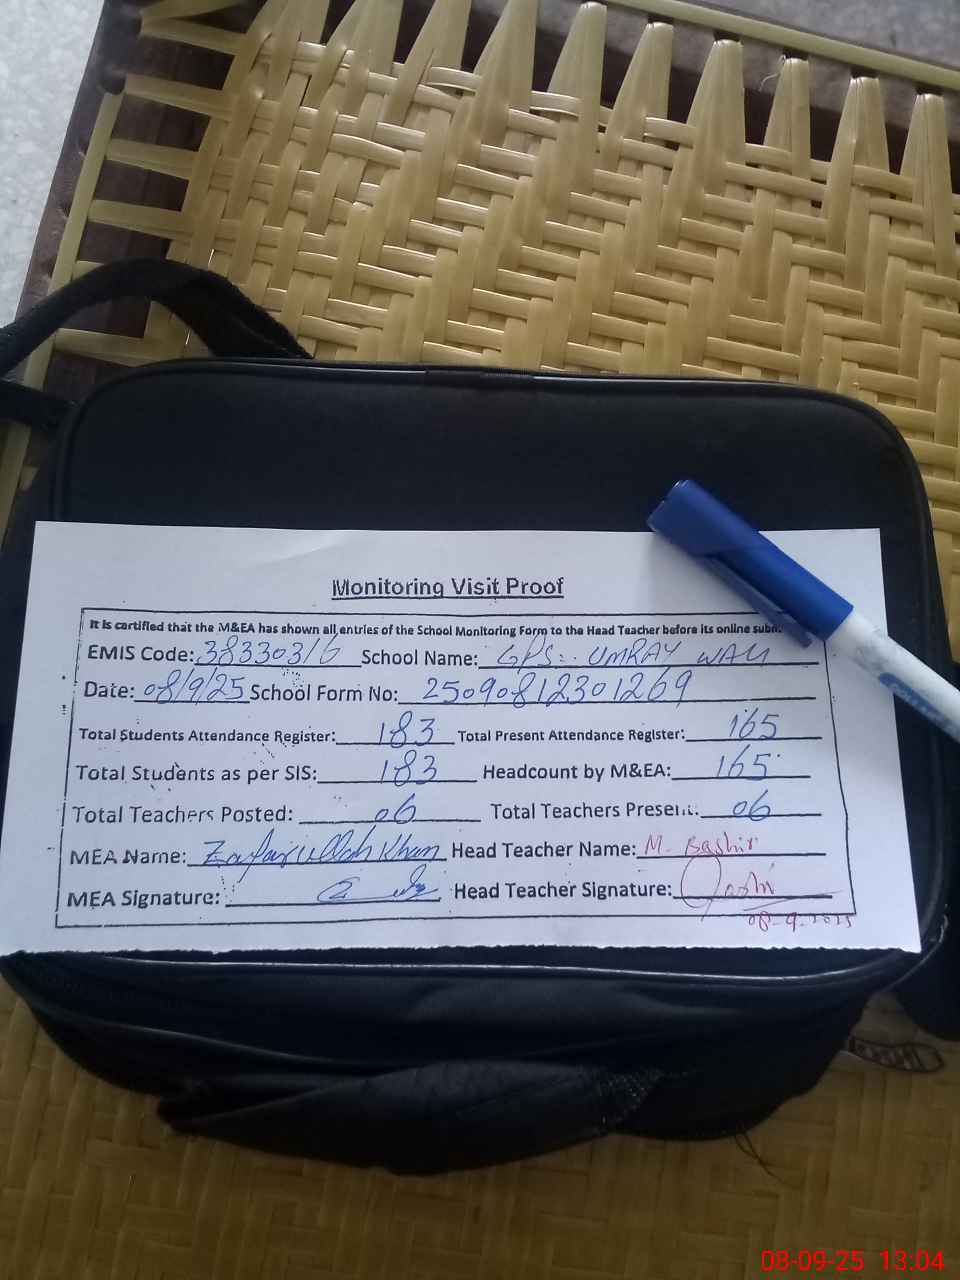 Monitoring Visit Proof
It is certified that the M&EA has shown all entries of the School Monitoring Form to the Head Teacher before its online subm.
EMIS Code: 38330316 School Name: GPS:. UMRAY WALI
Date: 08/9/25 School Form No: 25090812301269
Total Students Attendance Register: 183 Total Present Attendance Register: 165
Total Students as per SIS: 183 Headcount by M&EA: 165
Total Teachers Posted: 06 Total Teachers Present: 06
MEA Name: Zafarullah Khan Head Teacher Name: M. Bashir
MEA Signature: Head Teacher Signature:
08-9-2025
08-09-25 13:04